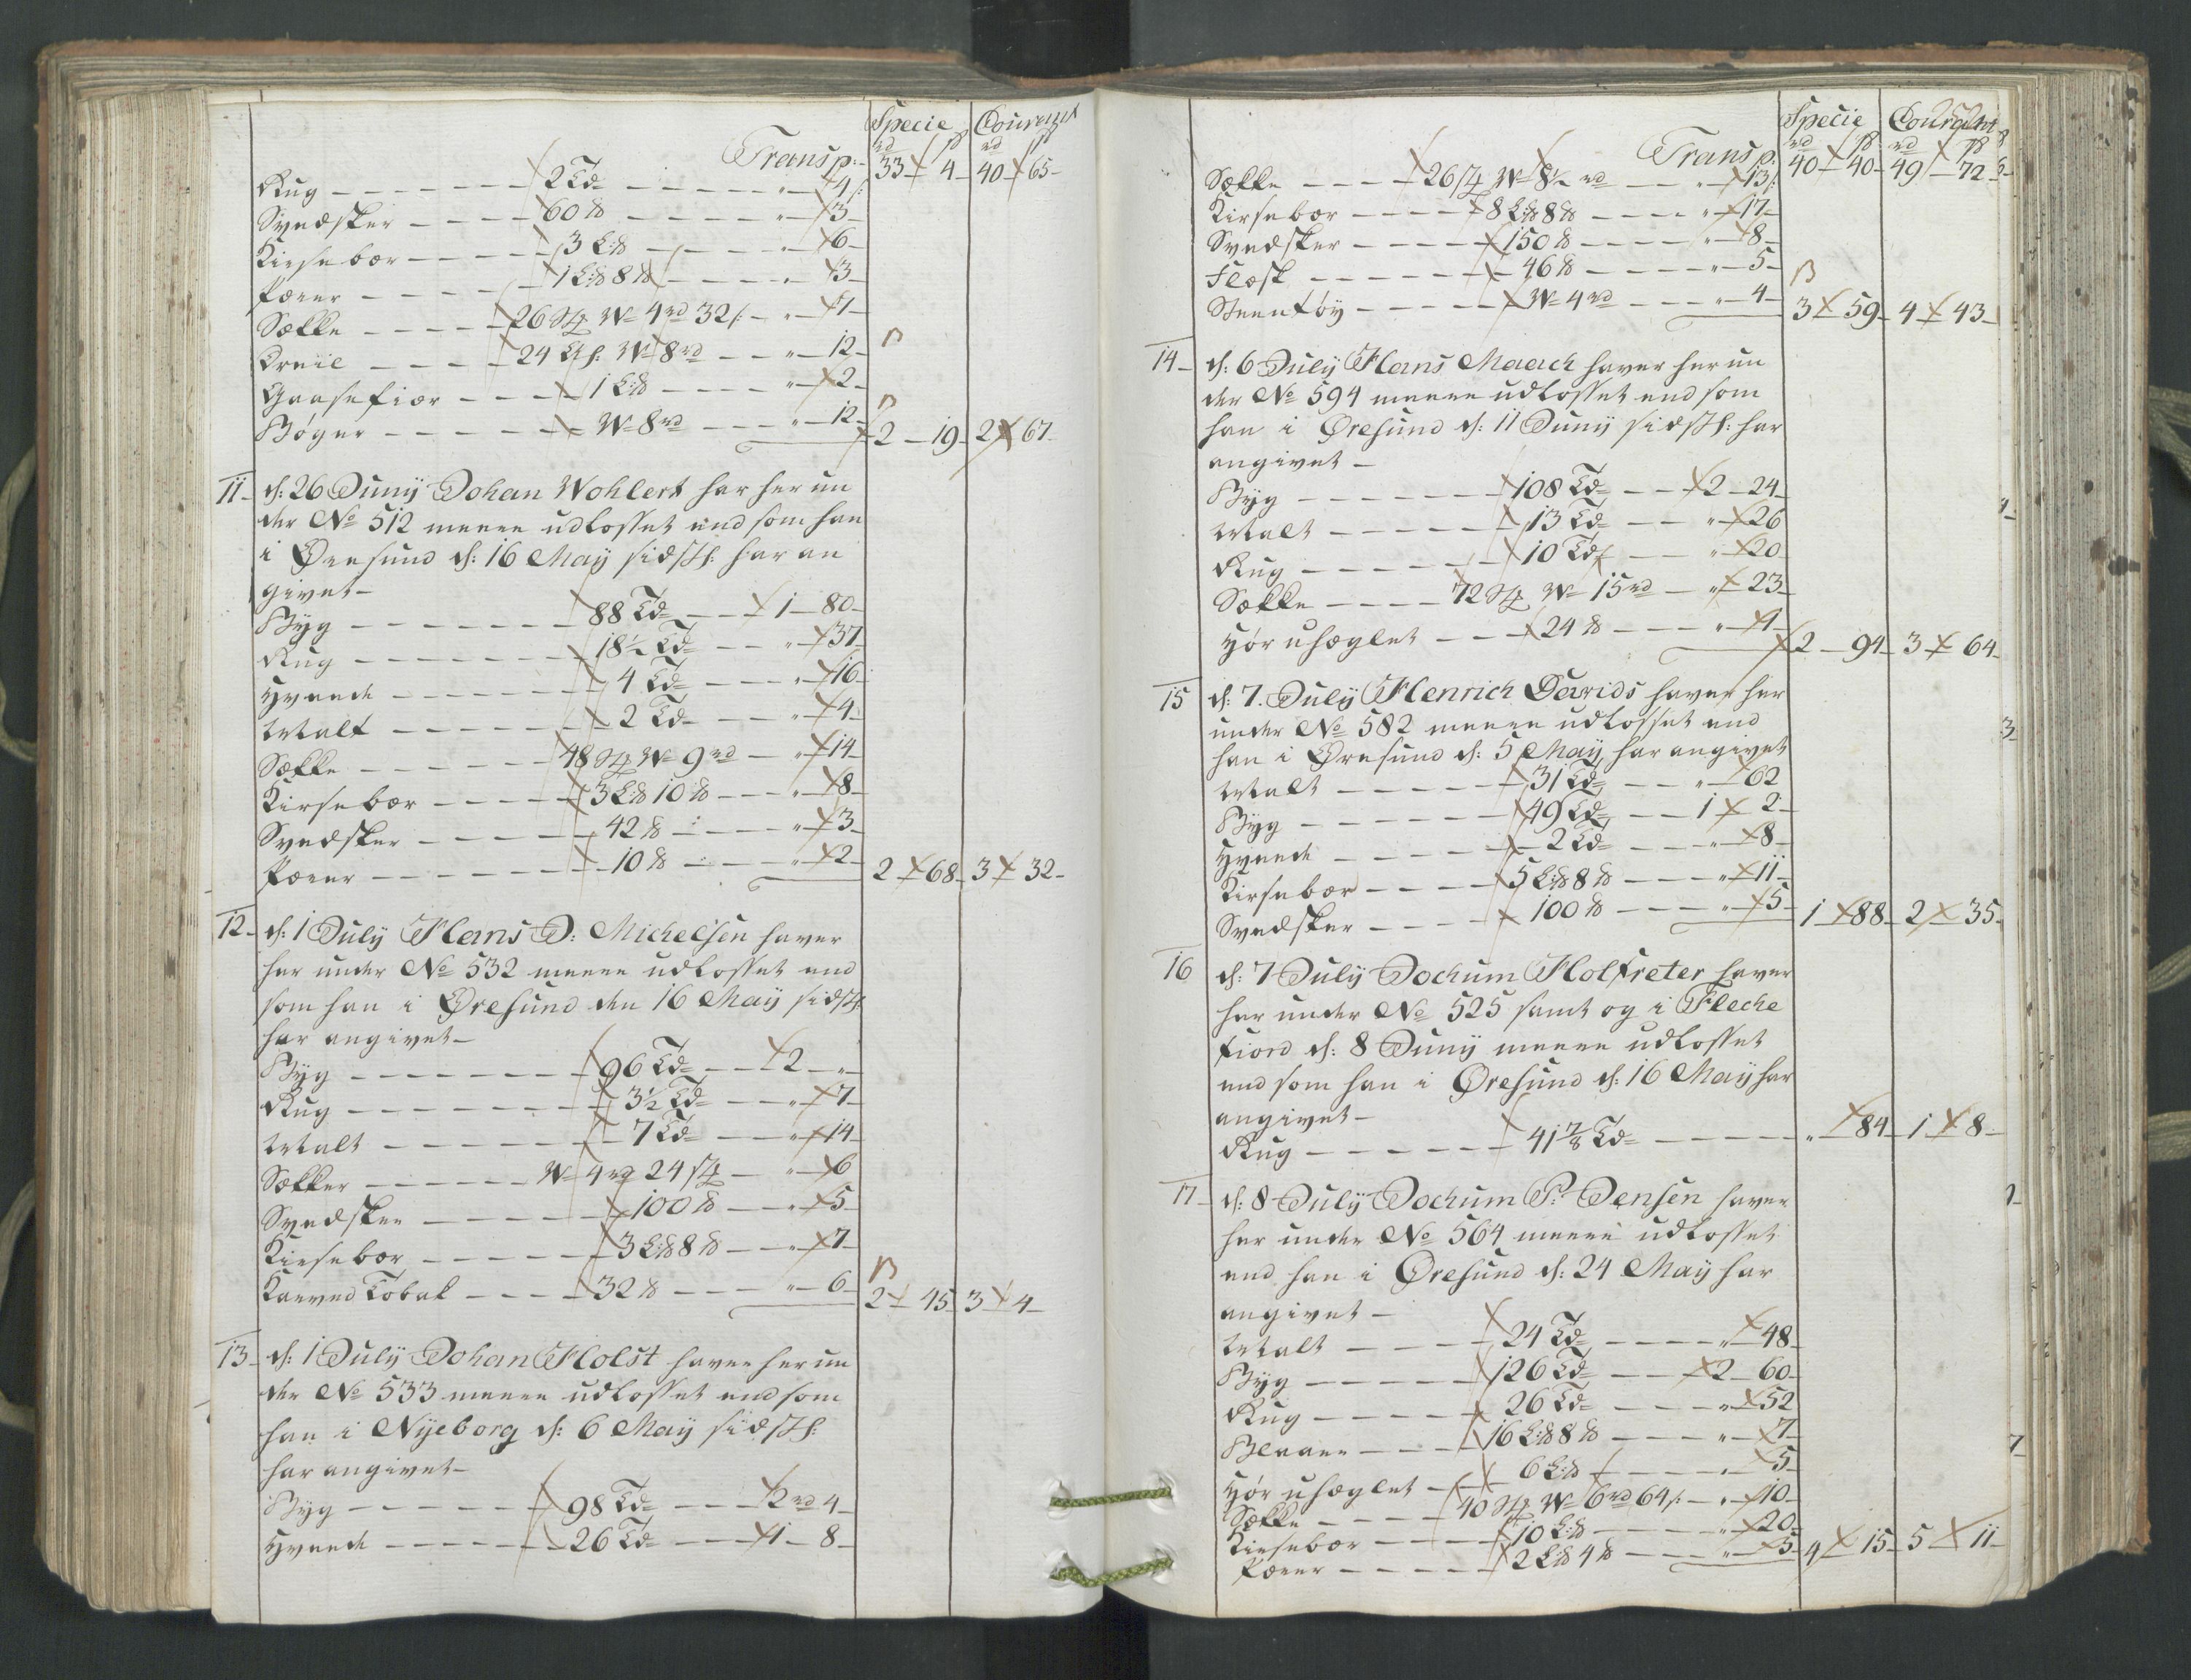 Specie Courant
rd ß rd ß
Transp: 33 - 4 - 40 - 65 -
Rug - - - - 2 Td - - - " - 4 -
Svedsker - - - - 60 ℔ - - - - " - 3 -
Kirsebær - - - - 3 L:℔ - - - " - 6 -
Pærer - - - - 1 L:℔ 8 ℔ - - - " - 3 -
Sække - - - - 26 Stk W= 4 rd 32 ß - " - 7 -
Dreiel - - - - 24 W= 8 rd - - " - 12 -
Gaasefiær - - - 1 L:℔ - - - - " - 2 -
Bøger - - - - W= 8 rd - - - " - 12 -
2 - 19 - 2 - 67 -
11 - d: 26 Junij Johan Wohlert har her un
der No 512 meere udlosset end som han
i Øresund d: 16 Maij sidstl: har an
givet -
Byg - - - - - 88 Td - - 1 - 80 -
Rug - - - - - 18½ Td - - " - 37 -
Hvede - - - - - 4 Td - - - " - 16 -
Malt - - - - - 2 Td - - - " - 4 -
Sække - - - - 48 Stk W= 9 rd - " - 14 -
Kirsebær - - - - 3 L:℔ 10 ℔ - - " - 8 -
Svedsker - - - - 42 ℔ - - - " - 3 -
Pærer - - - - - 10 ℔ - - - " - 2 -
2 - 68 - 3 - 32 -
12 - d: 1 July Hans D: Michelsen haver
her under No 532 meere udlosset end
som han i Øresund den 16 Maij sidstl:
har angivet -
Byg - - - - - 96 Td - - 2 - " -
Rug - - - - - 3½ Td - - " - 7 -
Malt - - - - - 7 Td - - " - 14 -
Sækker - - - - W= 4 rd 24 Stk - " - 6
Svedsker - - - - 100 ℔ - - " - 5 -
Kirsebær - - - - 3 L:℔ 8 ℔ - - " - 7 -
Karved Tobak - - - 32 ℔ - - - " - 6 -
2 - 45 - 3 - 4 -
13 - d: 1 July Johan Holst haver her un
der No 533 meere udlosset end som
han i Nyeborg d: 6 Maij sidstl:
har angivet -
Byg - - - - - 98 Td - - 2 rd 4 -
Hvede - - - - - 26 Td - - 1 - 8 -
Specie Courant
rd ß rd ß
Transp: 40 - 40 - 49 - 72 -
Sække - - - - 26 Stk W= 8½ rd - - " - 13 -
Kirsebær - - - - 8 L:℔ 8 ℔ - - - " - 17 -
Svedsker - - - - 150 ℔ - - - " - 8 -
Flesk - - - - - 46 ℔ - - - " - 5 -
Steentøy - - - - W= 4 rd - - - " - 4 -
3 - 59 - 4 - 43 -
14 - d: 6 July Hans Maack haver her un
der No 594 meere udlosset end som
han i Øresund d: 11 Junij sidstl: har
angivet -
Byg - - - - - 108 Td - - 2 - 24 -
Malt - - - - - 13 Td - - " - 26
Rug - - - - - 10 Td - - " - 20
Sække - - - - 72 Stk W= 15 rd - " - 23 -
Hør uhæglet - - - 24 ℔ - - - " - 1 -
2 - 94 - 3 - 64 -
15 d: 7. July Henrich Davids haver her
under No 582 meere udlosset end
han i Øresund d: 5 Maij har angivet
Malt - - - - - 31 Td - - " - 62
Byg - - - - - 49 Td - - 1 - 2 -
Hvede - - - - - 2 Td - - - " - 8 -
Kirsebær - - - - 5 L:℔ 8 ℔ - - - " - 11 -
Svedsker - - - - 100 ℔ - - - " - 5 -
1 - 88 - 2 - 35 -
16 d: 7 July Jochum Holfreter haver
her under No 525 samt og i Fleche
fiord d: 8 Junij meere udlosset
end som han i Øresund d: 16 Maij har
angivet -
Rug - - - - - 41⅞ Td - - - - - " - 84 - 1 - 8 -
17 - d: 8 July Jochum P: Jensen haver
her under No 564 meere udlosset
end han i Øresund d: 24 Maij har
angivet -
Malt - - - - 24 Td - - - - " - 48 -
Byg - - - - - 126 Td - - 2 - 60 -
Rug - - - - - 26 Td - - - " - 52
Blaarer - - - 16 L:℔ 8 ℔ - - - " - 7 -
Hør uhæglet - - 6 L:℔ - - - - " - 5 -
Sække - - - - 40 Stk W= 6 rd 64 ß - " - 10 -
Kirsebær - - - - 10 L:℔ - - - - " - 20 -
Pærer - - - - - 2 L:℔ 4 ℔ - - - " - 5 -
4 - 15 - 5 - 11 -